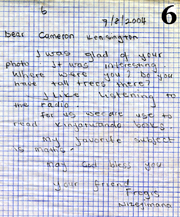 6
6
9/8/2004
Dear Cameron
I was glad of your
photo It was interesting
where were you? Do you
have tall trees there?
I like listening to
the radio.
For us we are use to
read kinyarwanda books
My favorite subject
is maths.
may God bless you
your friend